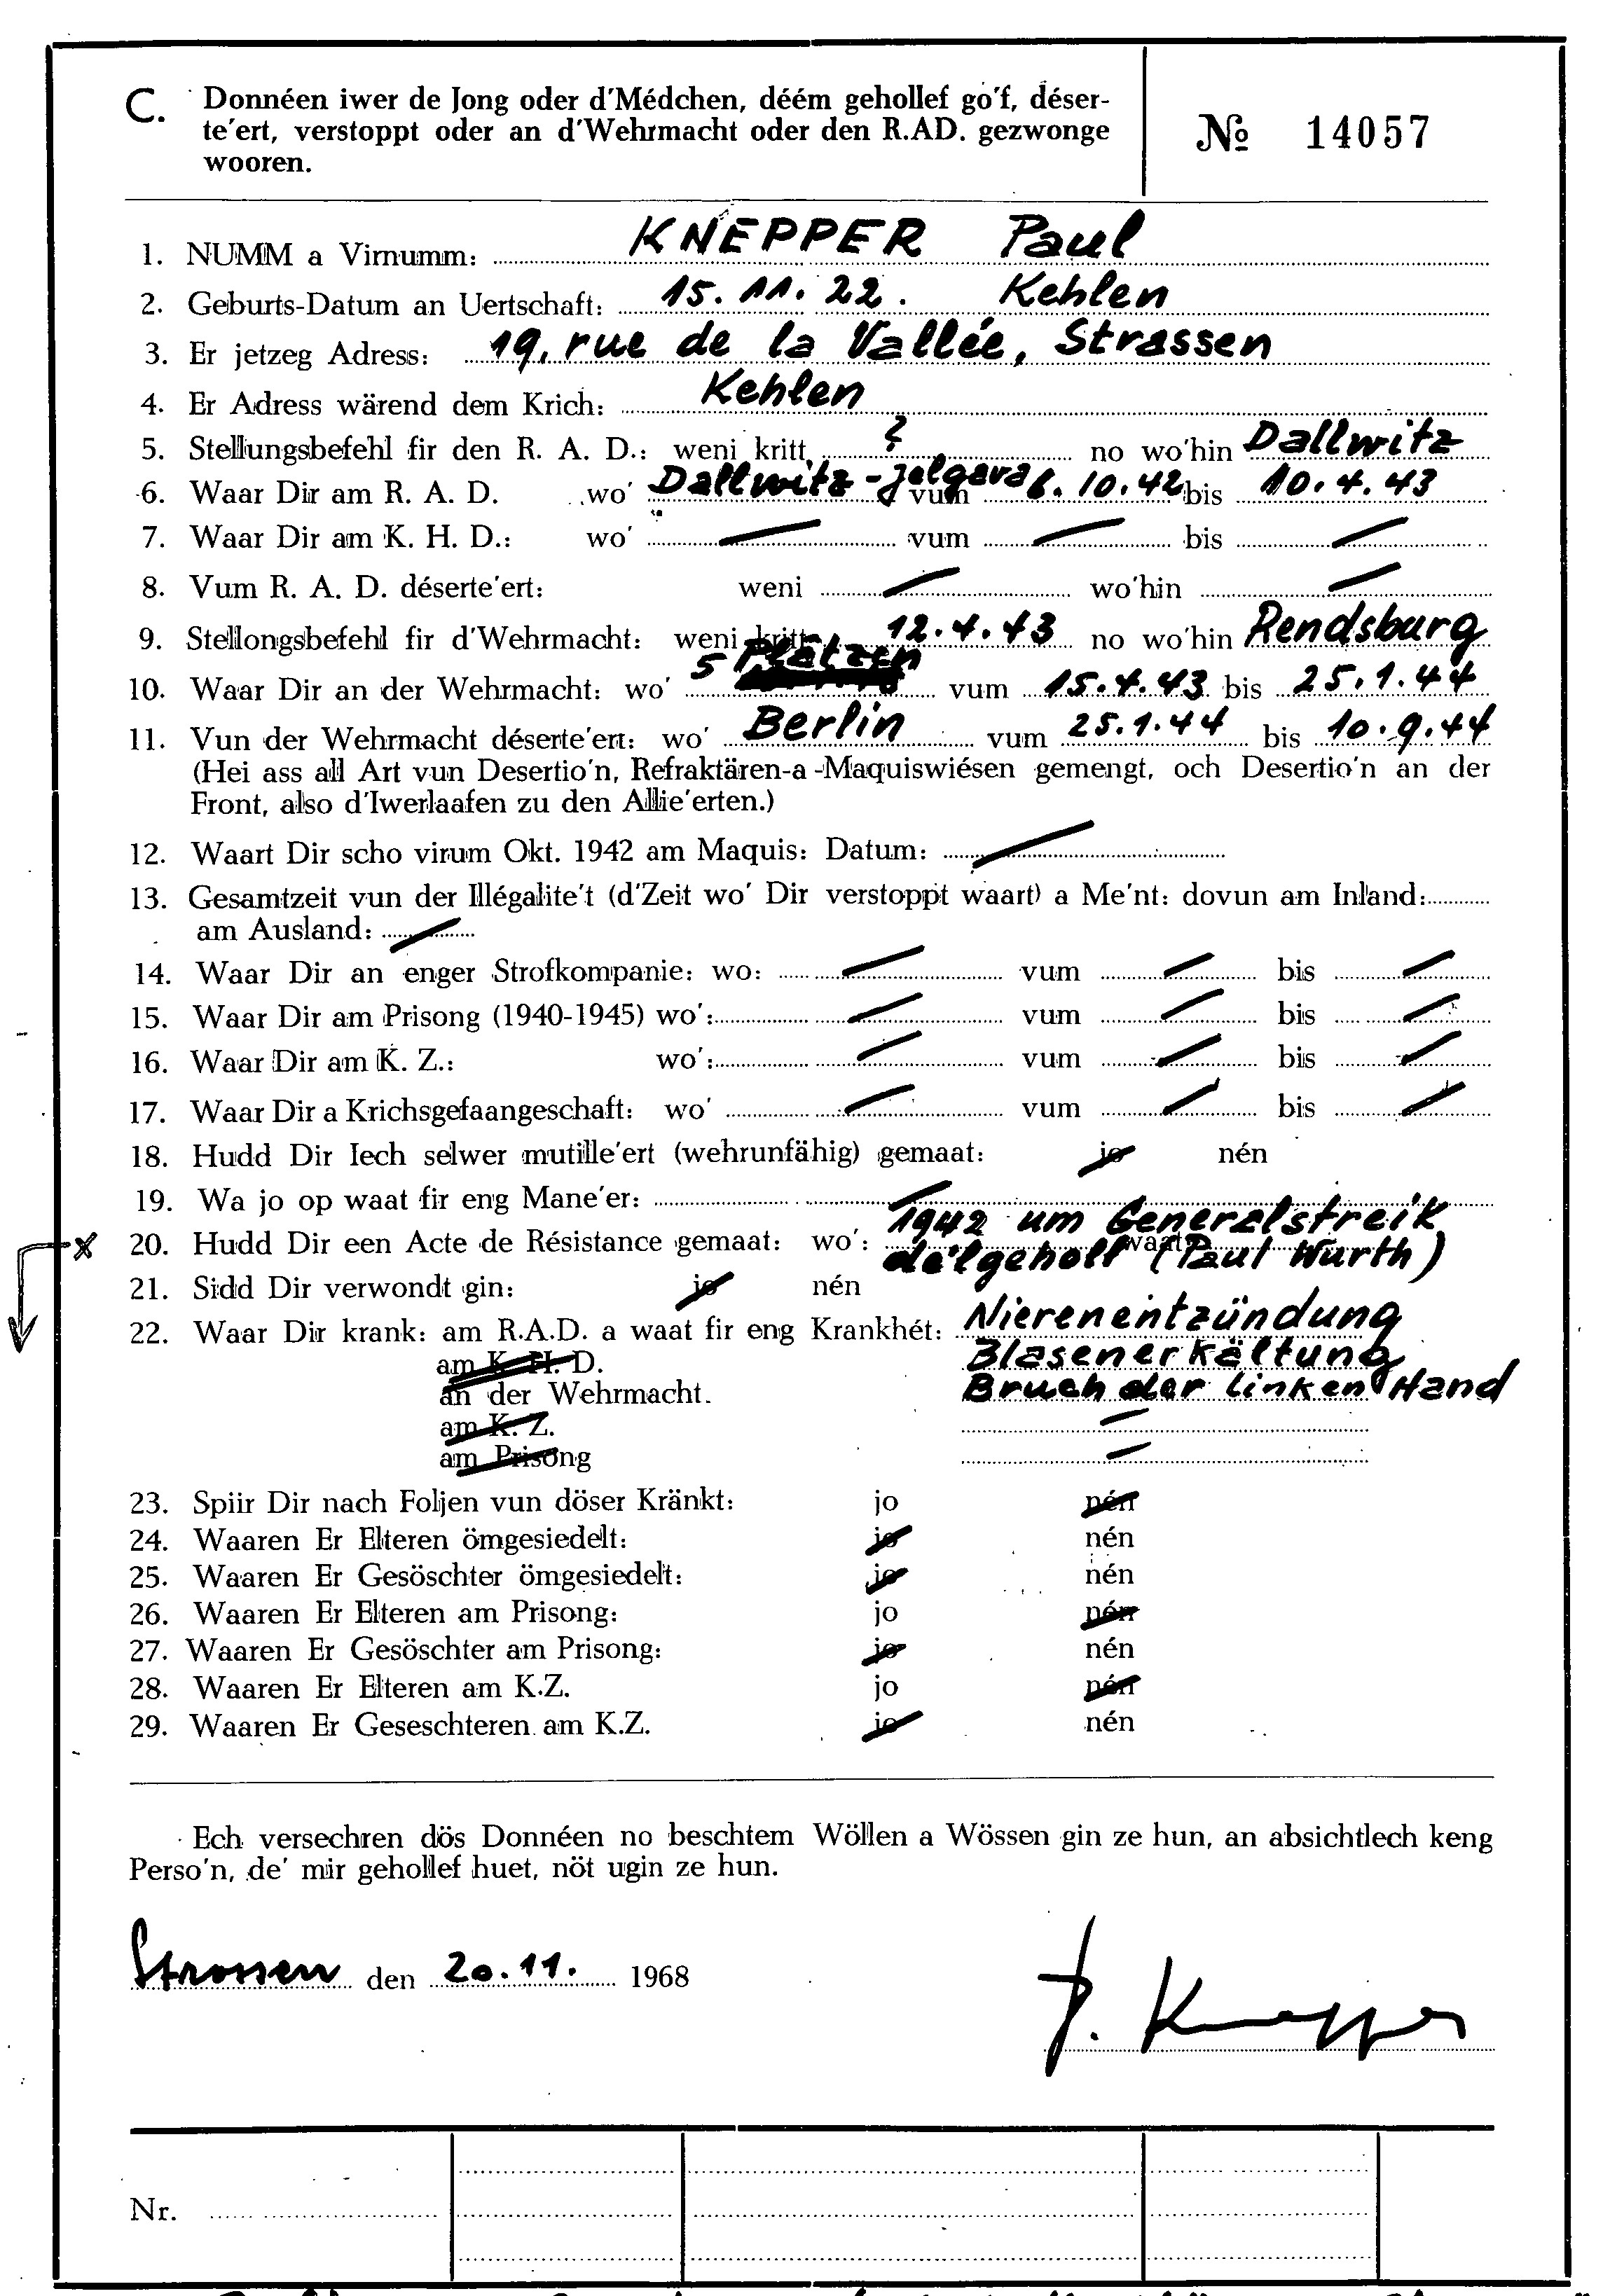 C. Donnéen iwer de Jong oder d'Médchen, déém gehollef go'f, déser-
te'ert, verstoppt oder an d'Wehrmacht oder den R.AD. gezwonge
wooren.
№ 14057
1. NUMM a Virnumm: KNEPPER Paul
2. Geburts-Datum an Uertschaft: 15. 11. 22. Kehlen
3. Er jetzeg Adress: 19, rue de la Vallée, Strassen
4. Er Adress wärend dem Krich: Kehlen
5. Stellungsbefehl fir den R. A. D.: weni kritt ? no wo'hin Dallwitz
6. Waar Dir am R. A. D. wo' Dallwitz - Jelgava vum 6. 10. 42 bis 10. 4. 43
7. Waar Dir am K. H. D.: wo' — vum — bis —
8. Vum R. A. D. déserte'ert: weni — wo'hin —
9. Stellongsbefehl fir d'Wehrmacht: weni kritt 12. 4. 43 no wo'hin Rendsburg
10. Waar Dir an der Wehrmacht: wo' 5 Plätzen vum 15. 4. 43 bis 25. 1. 44
11. Vun der Wehrmacht déserte'ert: wo' Berlin vum 25. 1. 44 bis 10. 9. 44
(Hei ass all Art vun Desertio'n, Refraktären-a-Maquiswiésen gemengt, och Desertio'n an der
Front, also d'Iwerlaafen zu den Allie'erten.)
12. Waart Dir scho virum Okt. 1942 am Maquis: Datum: —
13. Gesamtzeit vun der Illégalite't (d'Zeit wo' Dir verstoppt waart) a Me'nt: dovun am Inland:
am Ausland: —
14. Waar Dir an enger Strofkompanie: wo: — vum — bis —
15. Waar Dir am Prisong (1940-1945) wo': — vum — bis —
16. Waar Dir am K. Z.: wo': — vum — bis —
17. Waar Dir a Krichsgefaangeschaft: wo' — vum — bis —
18. Hudd Dir Iech selwer mutille'ert (wehrunfähig) gemaat: jo nén
19. Wa jo op waat fir eng Mane'er: —
20. Hudd Dir een Acte de Résistance gemaat: wo': 1942 um Generalstreik
waat: de'lgeholl (Paul Wurth)
21. Sidd Dir verwondt gin: jo nén
22. Waar Dir krank: am R.A.D. a waat fir eng Krankhét: Nierenentzündung
am K. H. D. Blasenerkältung
an der Wehrmacht. Bruch der linken Hand
am K. Z. —
am Prisong —
23. Spiir Dir nach Foljen vun döser Kränkt: jo nén
24. Waaren Er Elteren ömgesiedelt: jo nén
25. Waaren Er Gesöschter ömgesiedelt: jo nén
26. Waaren Er Elteren am Prisong: jo nén
27. Waaren Er Gesöschter am Prisong: jo nén
28. Waaren Er Elteren am K.Z. jo nén
29. Waaren Er Geseschteren am K.Z. jo nén
Ech versechren dös Donnéen no beschtem Wöllen a Wössen gin ze hun, an absichtlech keng
Perso'n, de' mir gehollef huet, nöt ugin ze hun.
Strossen den 20. 11. 1968
P. Knepper
Nr.